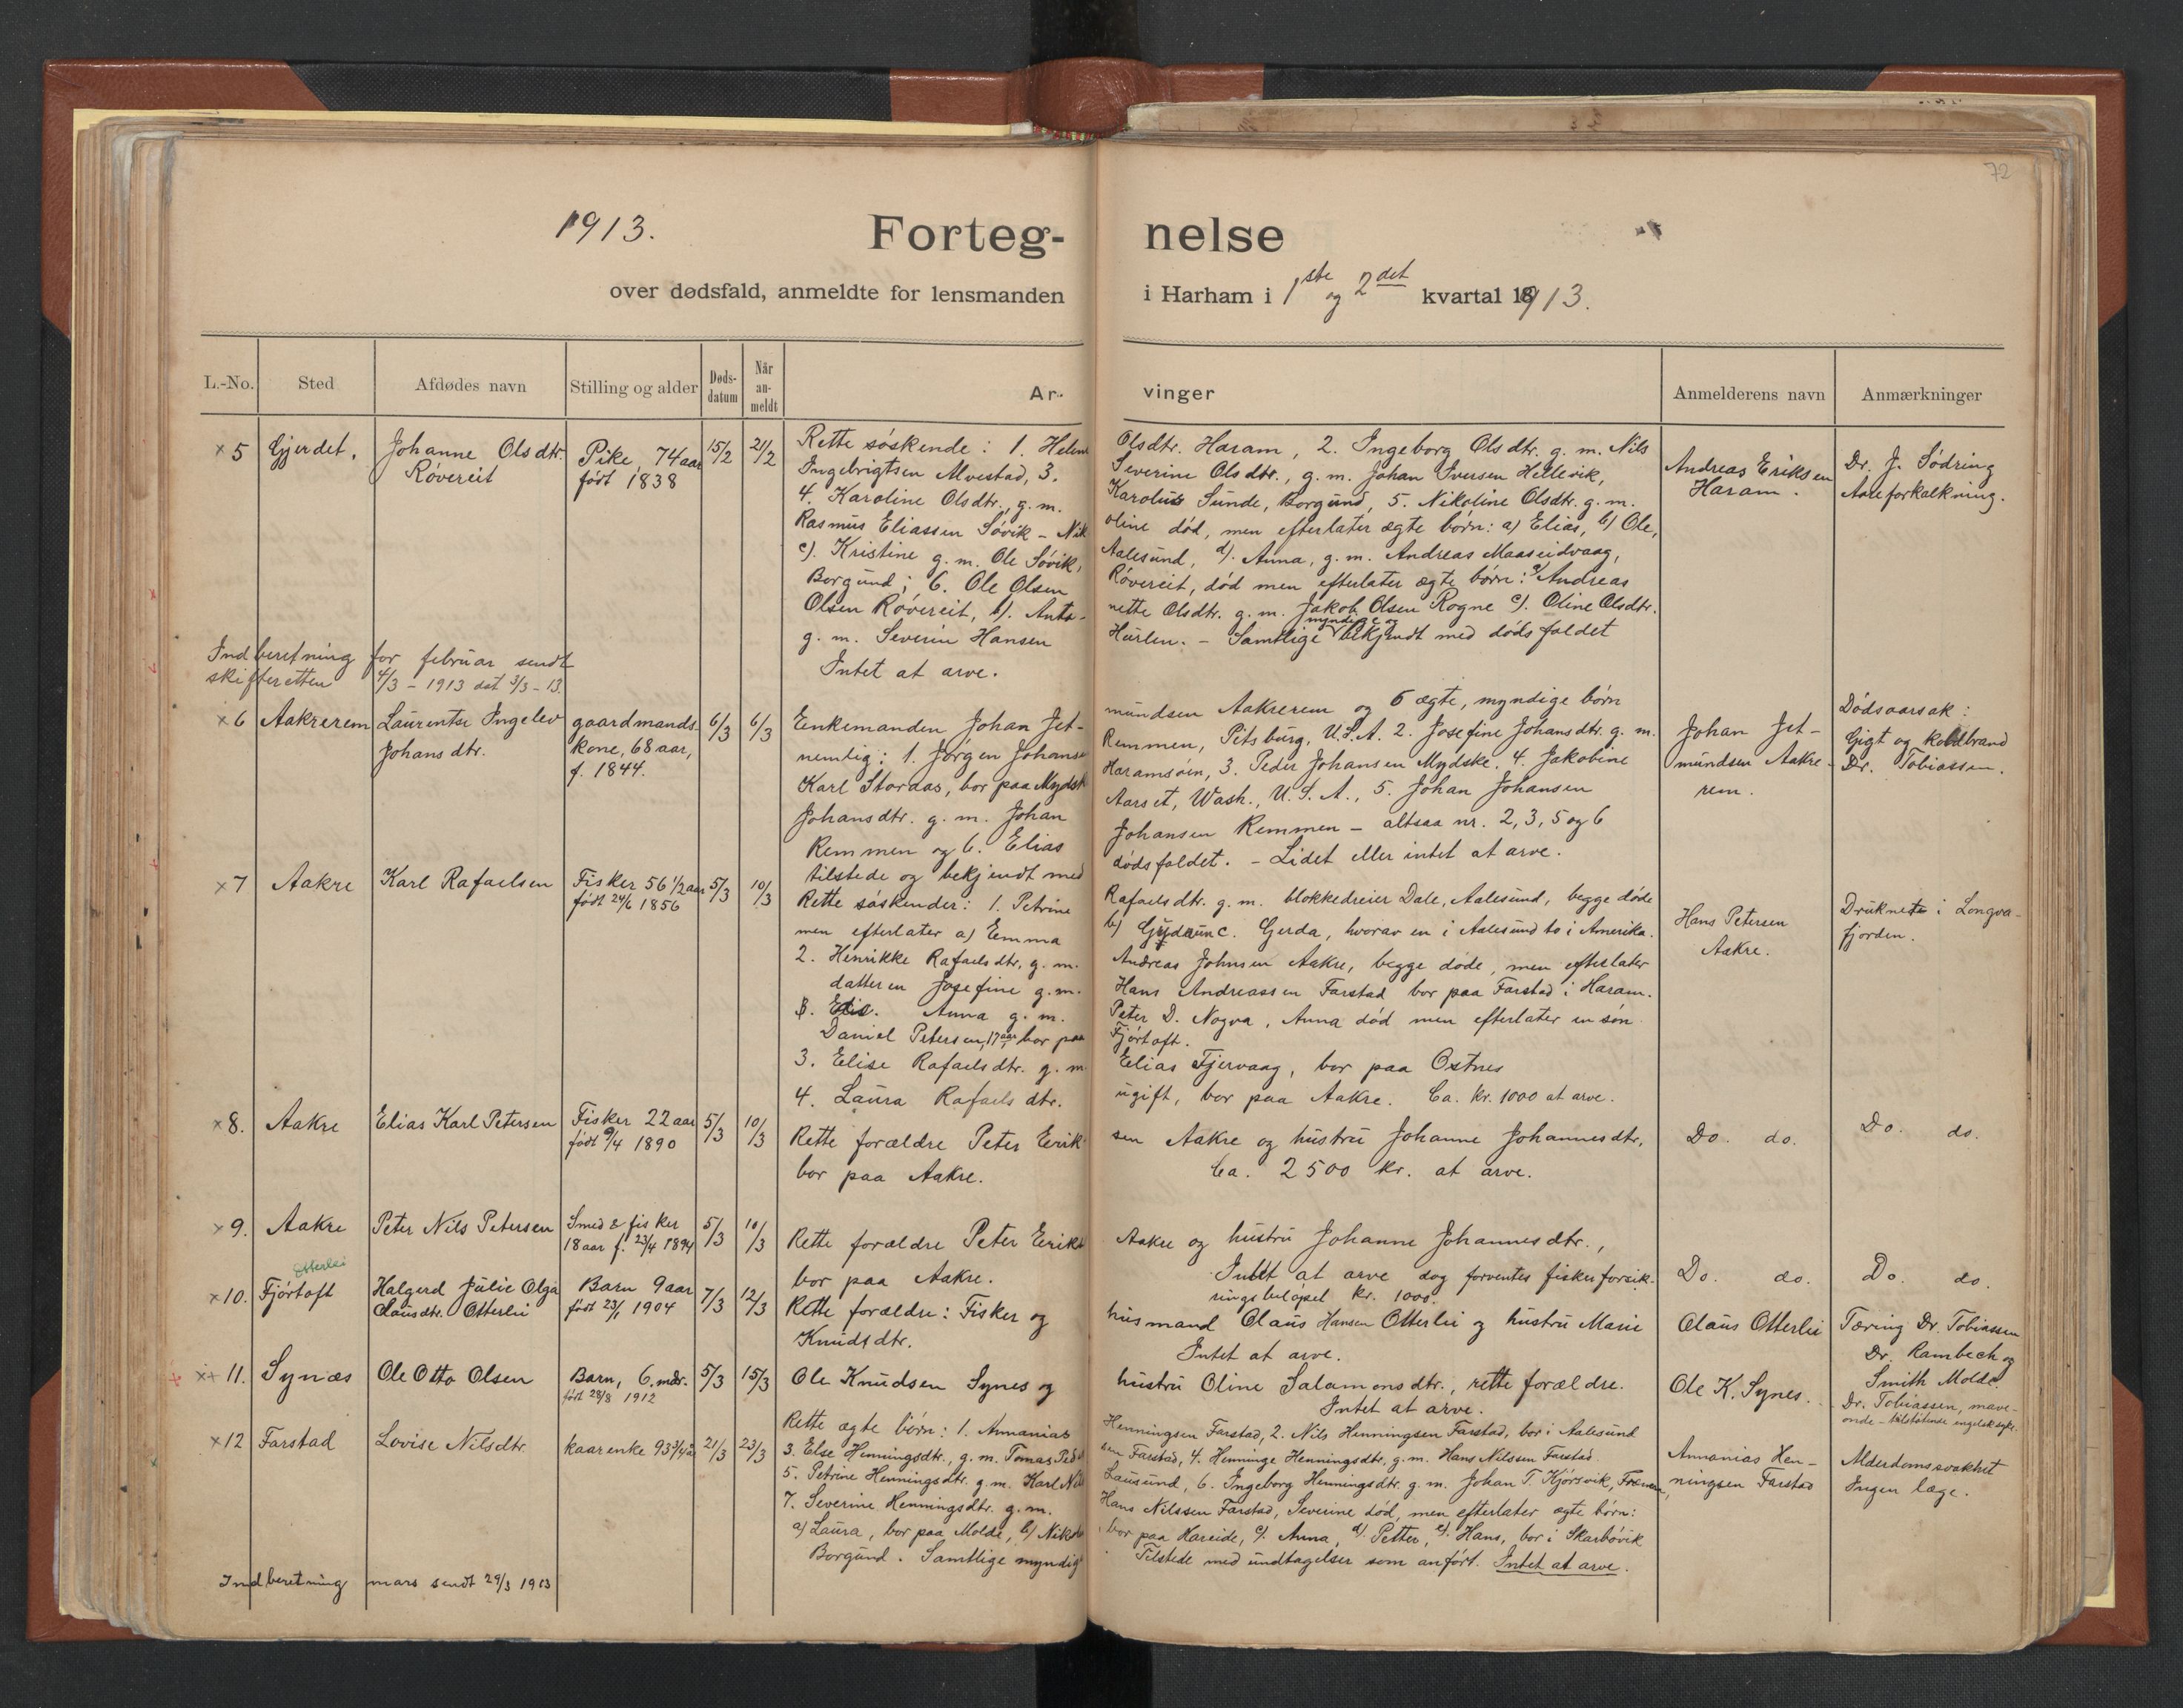 72
1913.
Forteg-
nelse
over dødsfald, anmeldte for lensmanden
i Harham i 1ste og 2det kvartal 1913.
L.-No. Sted Afdødes navn Stilling og alder Døds-datum Når an-meldt Ar- vinger Anmelderens navn Anmærkninger
×5 Gjerdet. Johanne Olsdtr. Røvereit Pike, 74 aar født 1838 15/2 21/2
Rette søskende: 1. Helene Olsdtr. Haram, 2. Ingeborg Olsdtr. g. m. Nils
Ingebrigtsen Alvestad, 3. Severine Olsdtr., g. m. Johan Iversen Hellevik,
4. Karoline Olsdtr., g. m. Karolus Sunde, Borgund, 5. Nikoline Olsdtr. g. m.
Rasmus Eliassen Søvik - Nikoline død, men efterlater ægte børn: a) Elias, b) Ole,
c). Kristine g. m. Ole Søvik, Aalesund, d). Anna, g. m. Andreas Maaseidvaag,
Borgund; 6. Ole Olsen Røvereit, død men efterlater ægte børn: a) Andreas
Olsen Røvereit, b). Antonette Olsdtr. g. m. Jakob Olsen Rogne c). Oline Olsdtr.
g. m. Severin Hansen Hurlen. - Samtlige myndige og bekjendt med dødsfaldet
Intet at arve.
Andreas Eriksen
Haram.
Dr. J. Sødring
Aareforkalkning.
Indberetning for februar sendt
skifteretten 4/3 - 1913 dat 3/3 - 13.
×6 Aakrerem Laurentse Ingelev Johansdtr. gaardmands-kone, 68 aar, f. 1844. 6/3 6/3
Enkemanden Johan Jetmundsen Aakrerem og 6 ægte, myndige børn
nemlig: 1. Jørgen Johansen Remmen, Pitsburg, U.S.A. 2. Josefine Johansdtr. g. m.
Karl Stordas, bor paa Mydsk Haramsøen, 3. Peder Johansen Mydske. 4. Jakobine
Johansdtr. g. m. Johan Aarset, Wash., U.S.A., 5. Johan Johansen
Remmen og 6. Elias Johansen Remmen - altsaa nr. 2, 3, 5 og 6
tilstede og bekjendt med dødsfaldet. - Lidet eller intet at arve.
Johan Jet-
mundsen Aakre-
rem.
Dødsaarsak:
Gigt og koldbrand
Dr. Tobiassen.
×7 Aakre Karl Rafaelsen Fisker 56 1/2 aar født 24/6 1856 5/3 10/3
Rette søskender: 1. Petrine Rafaelsdtr. g. m. blokkedreier Dale, Aalesund, begge døde
men efterlater a) Emma b) c. Gerda, hvorav en i Aalesund to i Amerika.
2. Henrikke Rafaelsdtr. g. m. Andreas Johnsen Aakre, begge døde, men efterlater
datteren Josefine g. m. Hans Andreassen Farstad bor paa Farstad i Haram.
Anna g. m. Peter D. Nogva, Anna død men efterlater en søn
Daniel Petersen, 17 aar, bor paa Fjørtoft.
3. Elise Rafaelsdtr. g. m. Elias Tjervaag, bor paa Ostnes
4. Laura Rafaelsdtr. ugift, bor paa Aakre. Ca. kr. 1000 at arve.
Hans Petersen
Aakre.
Druknet i Longva-
fjorden.
×8. Aakre Elias Karl Petersen Fisker 22 aar født 9/4 1890 5/3 10/3
Rette forældre Peter Eriksen Aakre og hustru Johanne Johannesdtr.
bor paa Aakre. Ca. 2500 kr. at arve.
Do. do.
Do. do.
×9. Aakre Peter Nils Petersen Smed & fisker 18 aar f. 23/4 1894 5/3 10/3
Rette forældre Peter Eriks Aakre og hustru Johanne Johannesdtr.,
bor paa Aakre. Intet at arve dog forventes fiskerforsik-
ringsbeløpet kr. 1000.
Do. do.
Do. do.
Otterlei
×10. Fjørtoft Halgerd Julie Olga Clausdtr. Otterlei Barn 9 aar født 23/1 1904 7/3 12/3
Rette forældre: Fisker og husmand Claus Hansen Otterlei og hustru Marie
Knudsdtr. Intet at arve.
Claus Otterlei
Tæring Dr. Tobiassen
Dr. Rambech og
Smith Molde.
×+ 11. Synæs Ole Otto Olsen Barn, 6. mdr. født 28/8 1912 5/3 15/3
Ole Knudsen Synes og hustru Oline Salamonsdtr., rette forældre.
Intet at arve.
Ole K. Synes.
Dr. Tobiassen, mave-
onde - tilstøtende engelsk syke.
×12 Farstad Lovise Nilsdtr. kaarenke 93 3/4 aar 21/3 23/3
Rette ægte børn: 1. Annanias Henningsen Farstad, 2. Nils Henningsen Farstad, bor i Aalesund
3. Else Henningsdtr., g. m. Tomas Pedersen Farstad, 4. Henninge Henningsdtr. g. m. Hans Nilssen Farstad
5. Petrine Henningsdtr. g. m. Karl Nils Lausund, 6. Ingeborg Henningsdtr. g. m. Johan T. Kjørsvik, Frænen,
7. Severine Henningsdtr. g. m. Hans Nilssen Farstad, Severine død, men efterlater ægte børn:
a) Laura, bor paa Molde, b) Nikolai bor paa Hareide, c). Anna, d). Petter, e). Hans, bor i Skarbøvik
Borgund. Samtlige myndig Tilstede med undtagelser som anført. Intet at arve.
Annanias Hen-
ningsen Farstad
Alderdomssvakhet
Ingen læge.
Indberetning mars sendt 29/3 1913